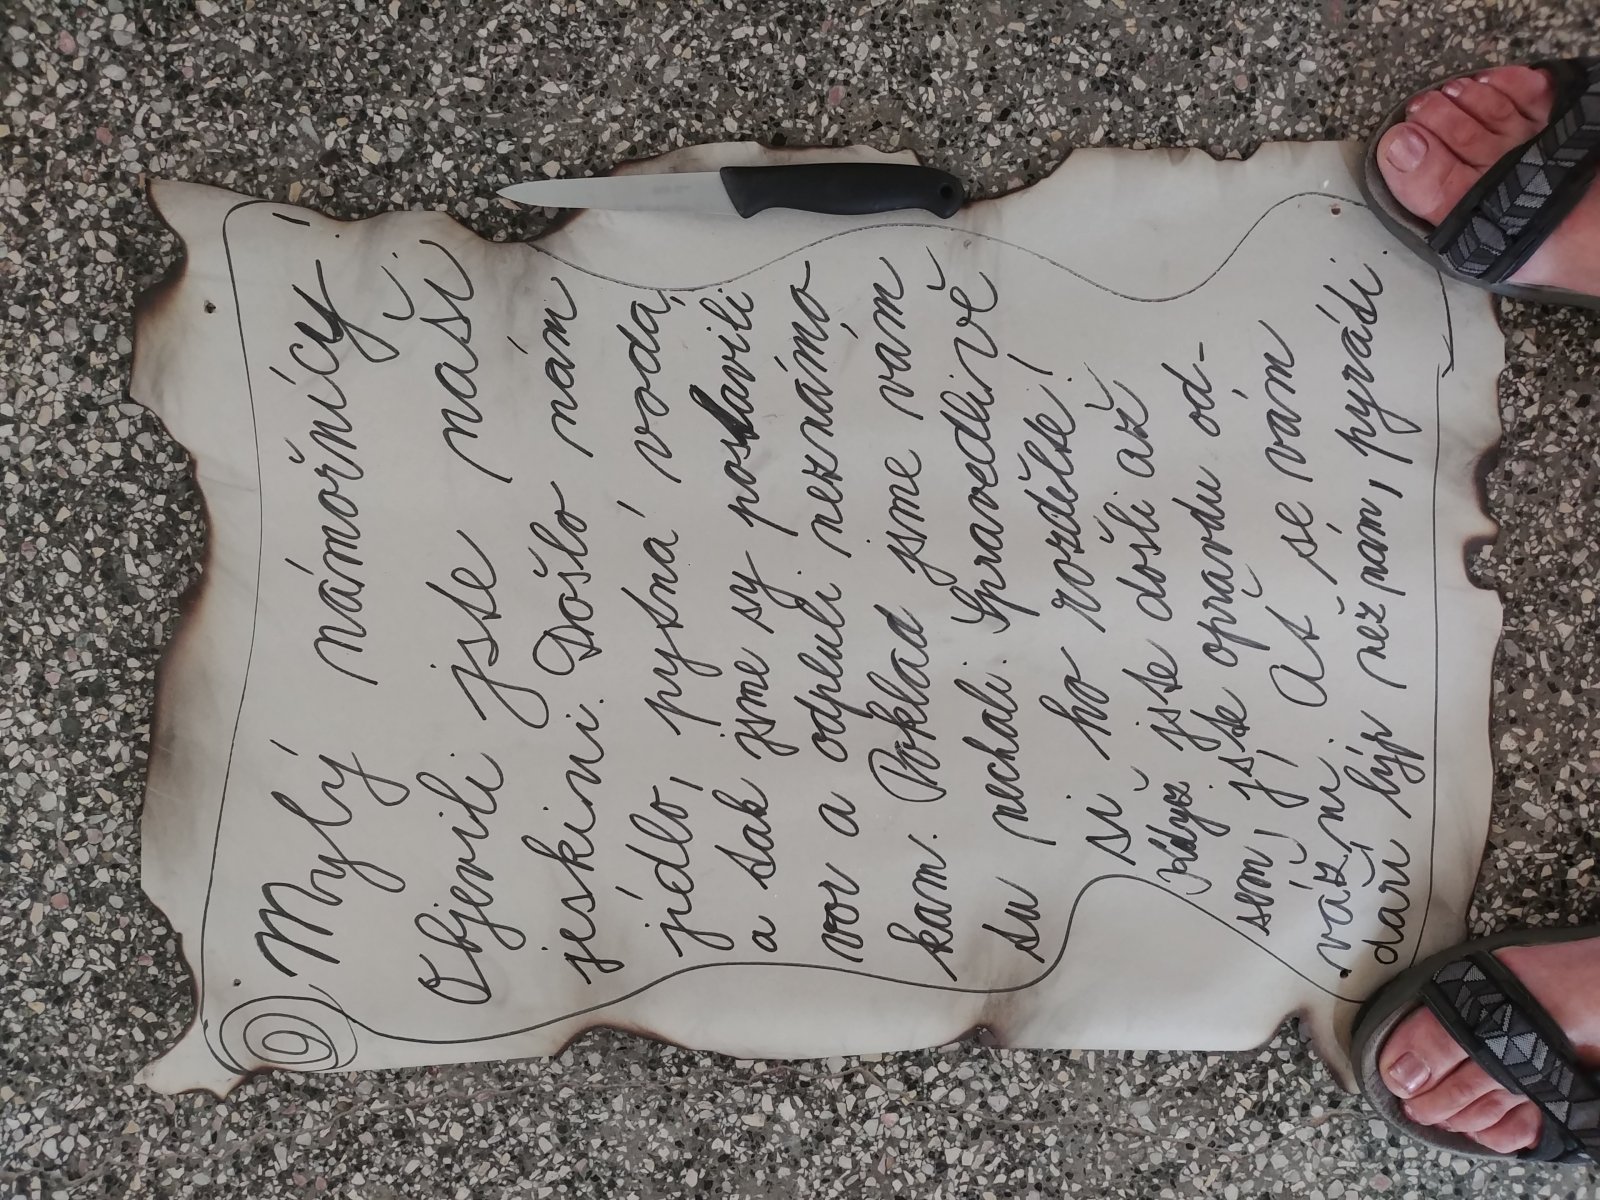 Mylý námořnícy!
Objevili jste naši
jeskini. Došlo nám
jédlo, pytná voda,
a tak jsme sy postavili
vor a odpluli neznámo
kam. Poklad jsme vám
tu nechali. Spravedlivě
si ho rozdělte!
Když jste došli až
sem, jste opravdu od-
vážní. Ať se vám
daří lýp než nám, pyráti.